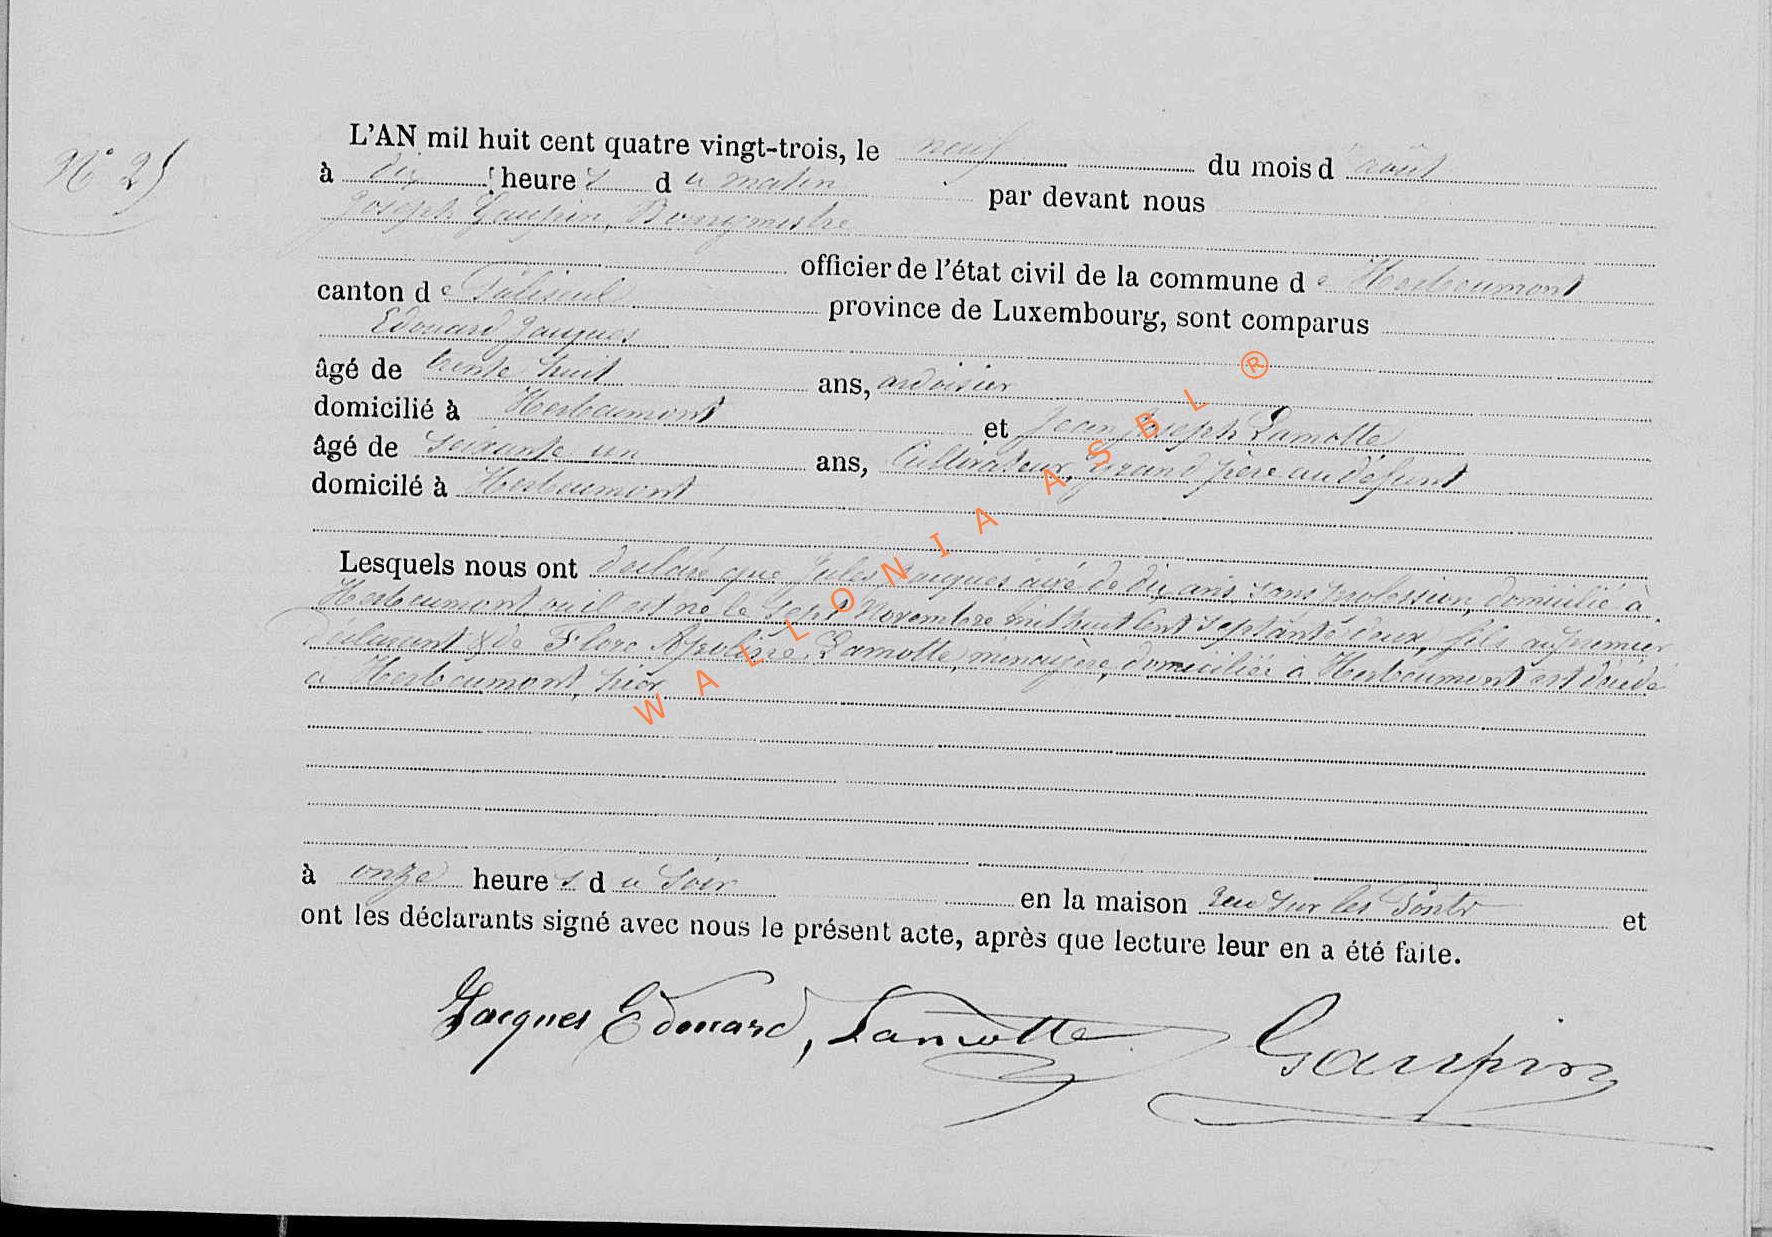 N° 25
L'AN mil huit cent quatre vingt-trois, le neuf du mois d'août
à dix heures du matin par devant nous
Joseph Gaupin, Bourgmestre
officier de l'état civil de la commune de Herbeumont
canton de Paliseul province de Luxembourg, sont comparus
Edouard Jacques
âgé de trente huit ans, ardoisier
domicilié à Herbeumont et Jean Joseph Lamotte
âgé de soixante un ans, Cultivateur, Grand père au défunt
domicilé à Herbeumont
Lesquels nous ont déclaré que Jules Jacques âgé de dix ans, sans profession, domicilié à
Herbeumont où il est né le sept Novembre mil huit cent septante deux, fils au premier
déclarant & de Flore Apoline Lamotte, ménagère, domiciliée à Herbeumont est décédé
à Herbeumont, hier
à onze heures du soir en la maison rue sur les Ponts et
ont les déclarants signé avec nous le présent acte, après que lecture leur en a été faite.
Jacques Edouard, Lamotte Gaupin
WALLONIA ASBL ®